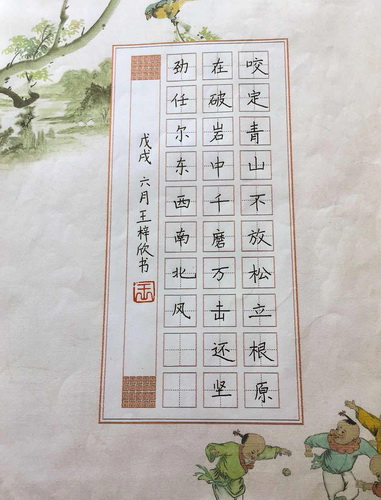 咬定青山不放松立根原
在破岩中千磨万击还坚
劲任尔东西南北风
戊戌 六月王梓欣书